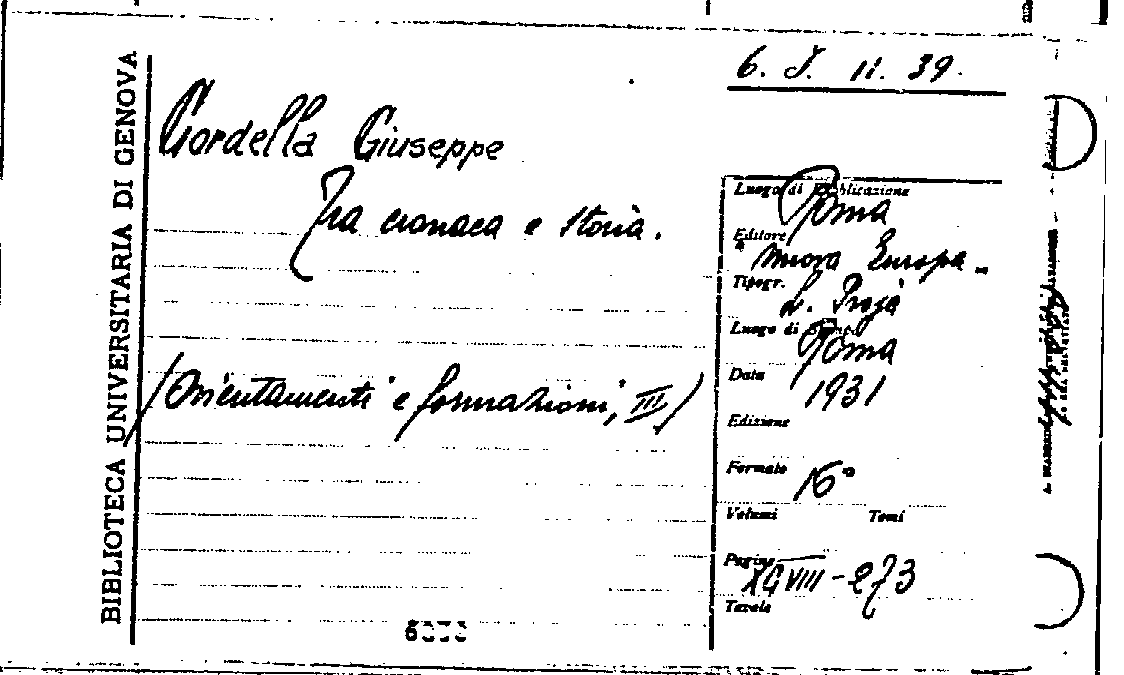 BIBLIOTECA UNIVERSITARIA DI GENOVA
6. J. 11. 39.
Cordella Giuseppe
Tra cronaca e storia.
(Orientamenti e formazioni, III)
Luogo di Pubblicazione
Roma
Editore
Nuova Europa -
Tipogr.
L. Proja
Luogo di
Roma
Data
1931
Edizione
Formato
16°
Volumi Tomi
Pagine
XCVIII - 273
Tavole